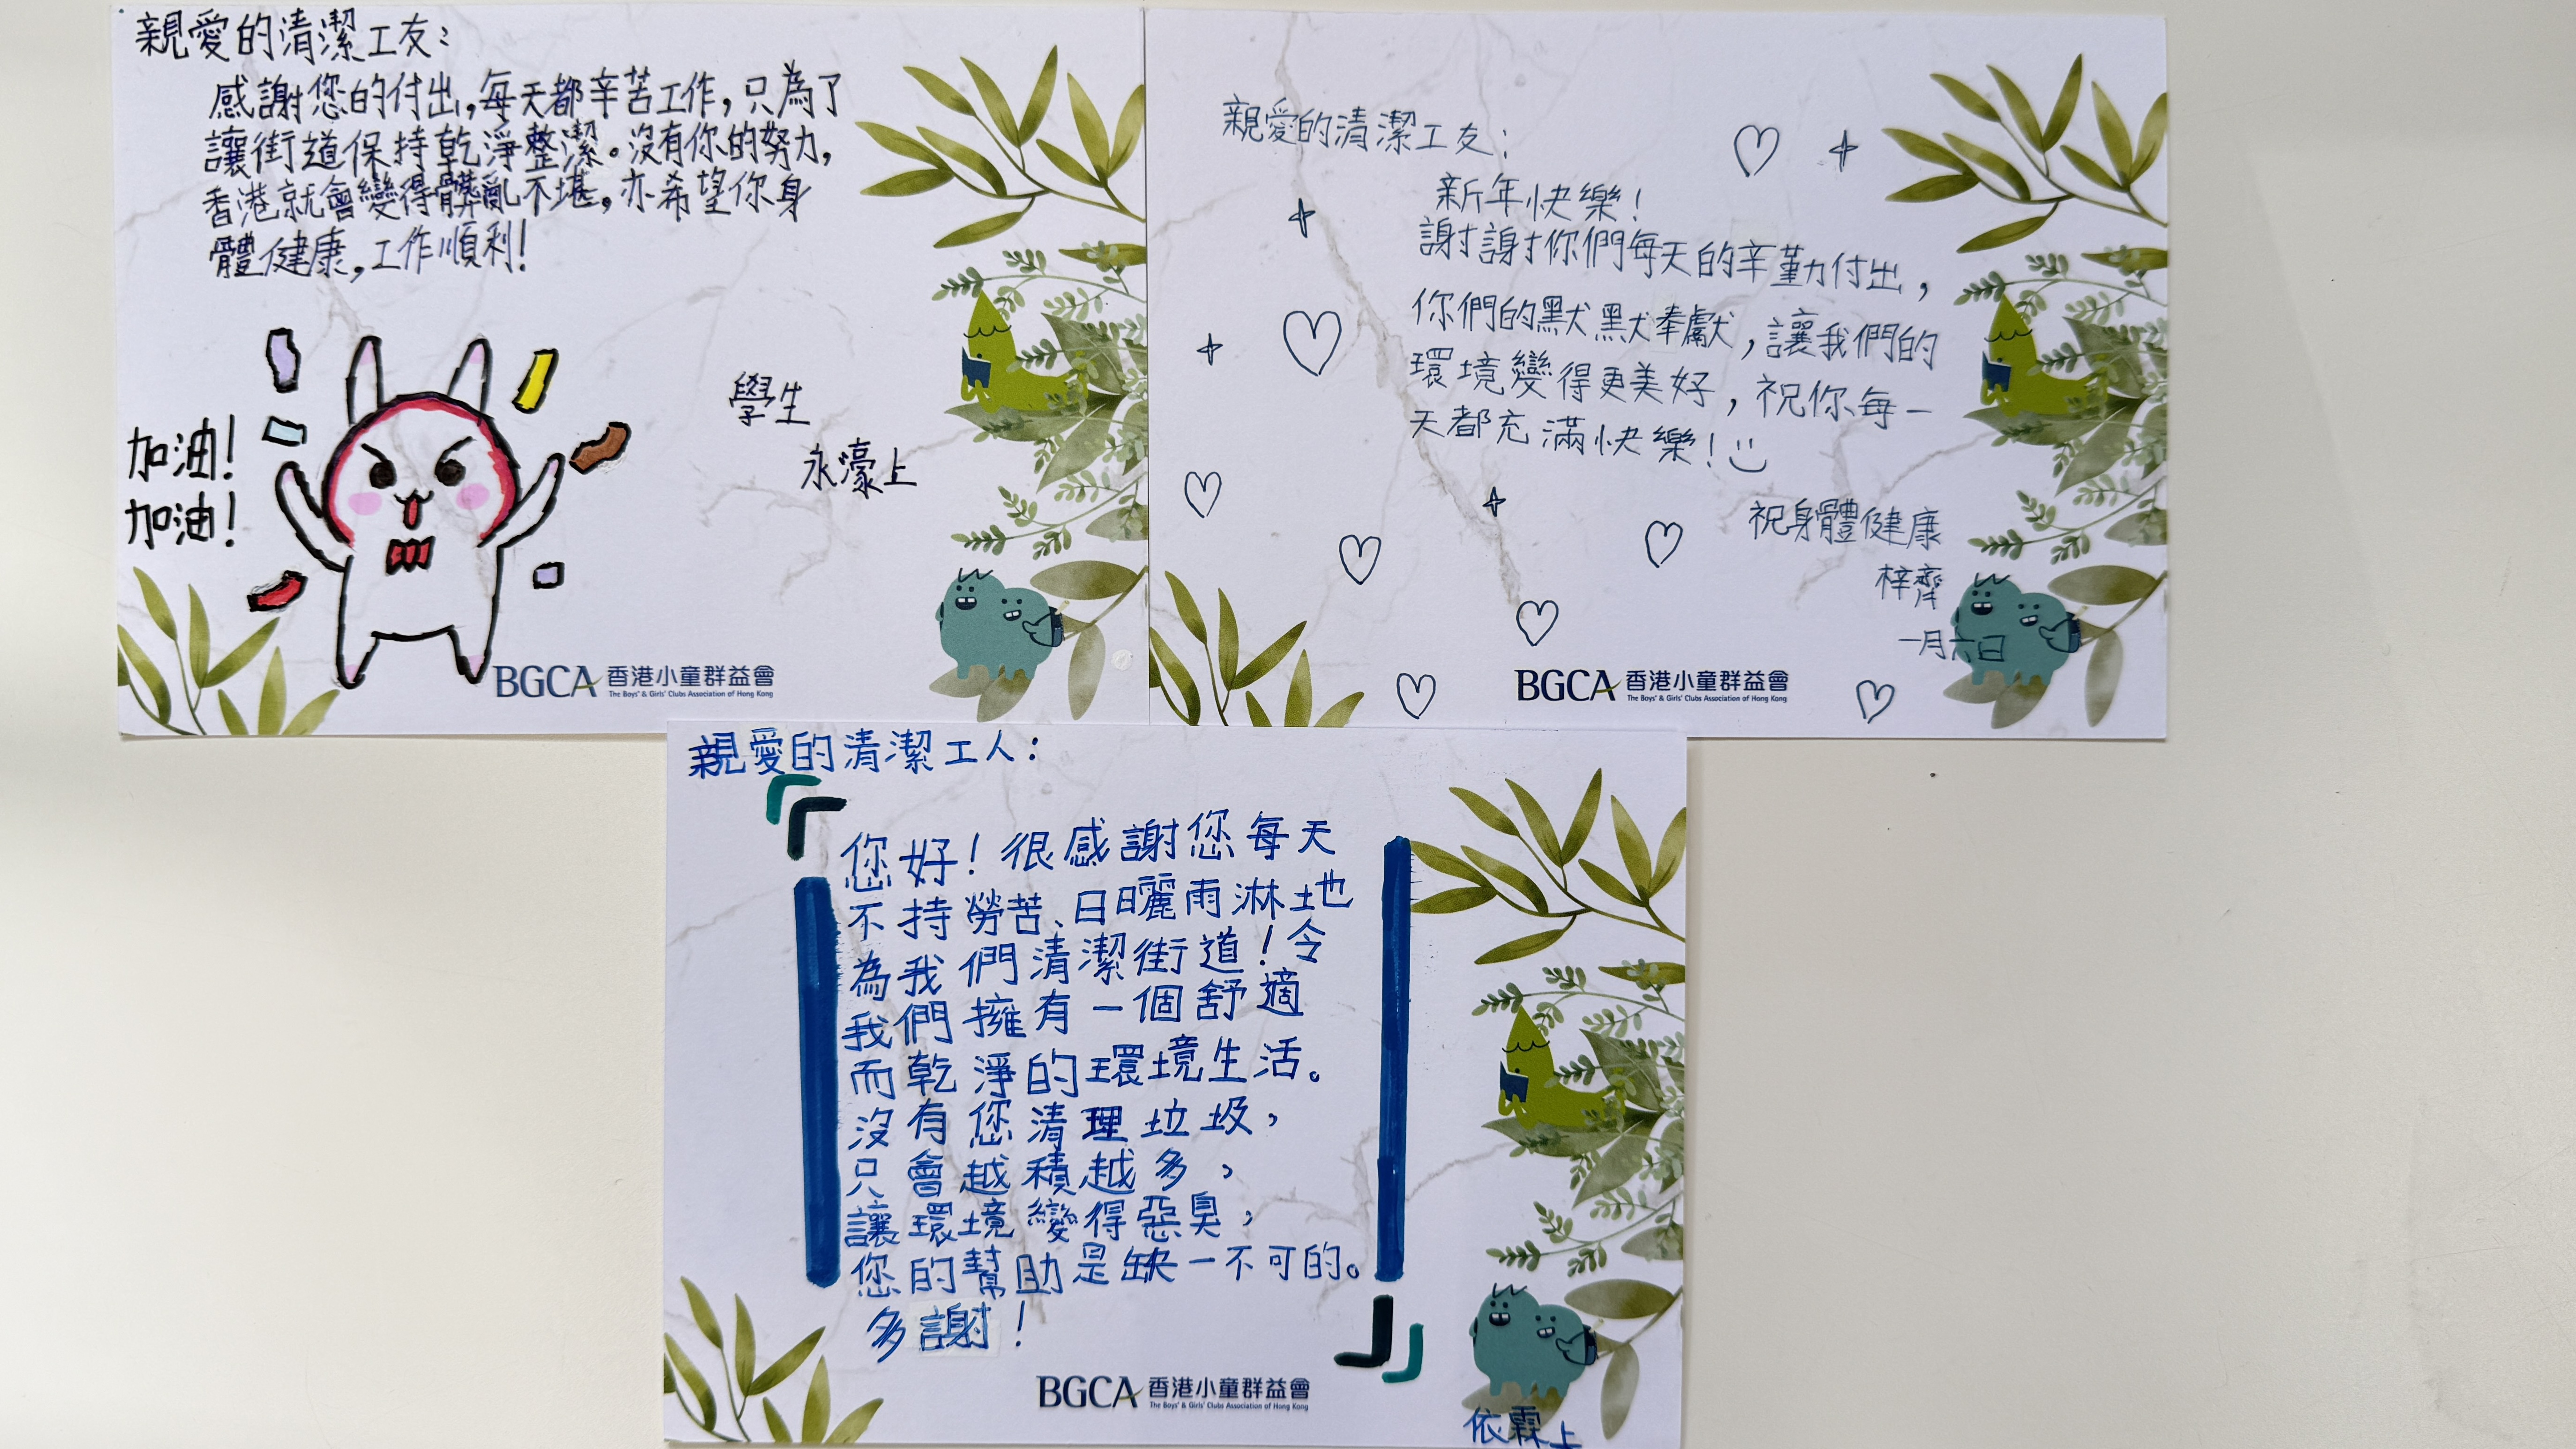 親愛的清潔工友：
感謝您的付出，每天都辛苦工作，只為了
讓街道保持乾淨整潔。沒有你的努力，
香港就會變得髒亂不堪，亦希望你身
體健康，工作順利！
加油！
加油！
學生
永濠上
BGCA 香港小童群益會
The Boys' & Girls' Clubs Association of Hong Kong
親愛的清潔工友：
新年快樂！
謝謝你們每天的辛勤付出，
你們的默默奉獻，讓我們的
環境變得更美好，祝你每一
天都充滿快樂！
祝身體健康
梓齊
一月六日
BGCA 香港小童群益會
The Boys' & Girls' Clubs Association of Hong Kong
親愛的清潔工人：
您好！很感謝您每天
不持勞苦、日曬雨淋地
為我們清潔街道！令
我們擁有一個舒適
而乾淨的環境生活。
沒有您清理垃圾，
只會越積越多，
讓環境變得惡臭，
您的幫助是缺一不可的。
多謝！
BGCA 香港小童群益會
The Boys' & Girls' Clubs Association of Hong Kong
依霖上